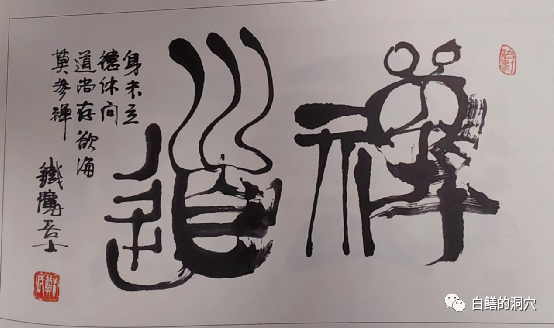 禪道
身未立
德休问
道尚存欲海
莫参禅
鐵居士
白鳝的洞穴